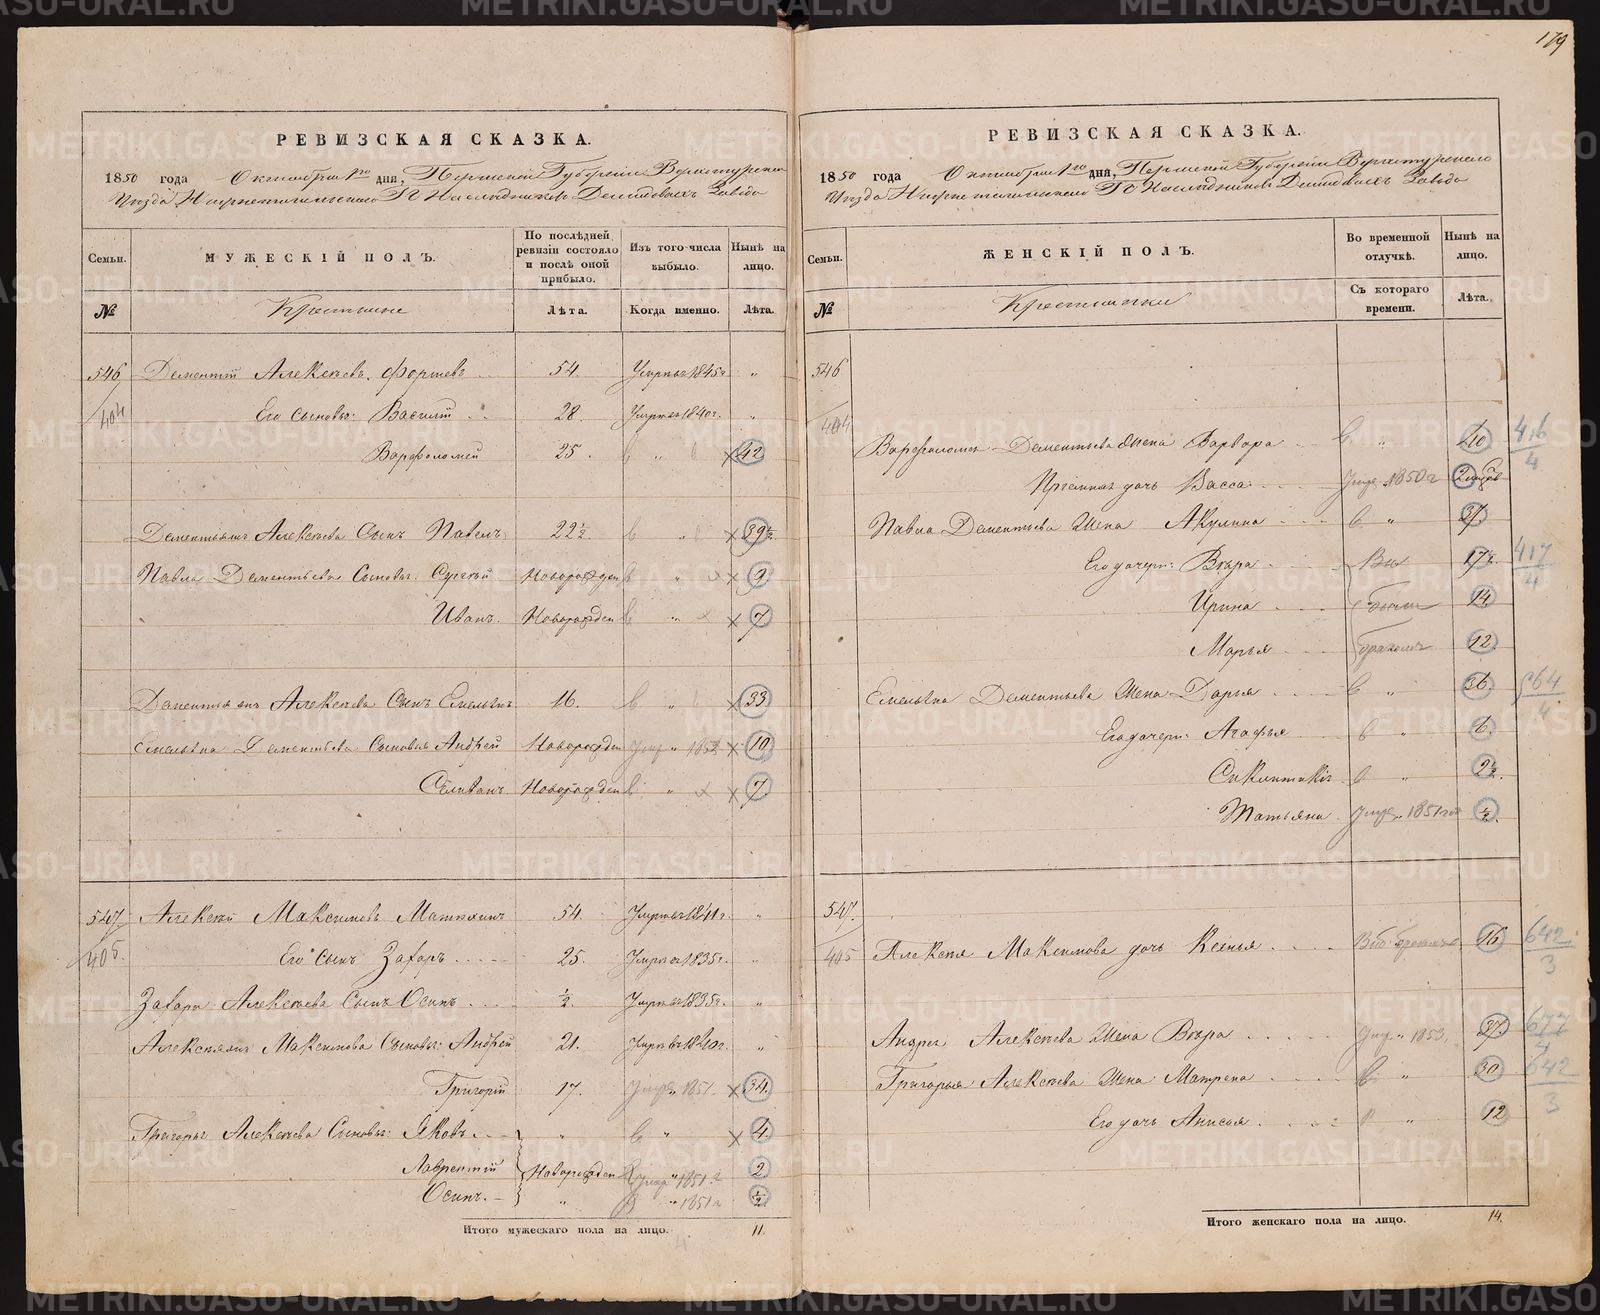 179
РЕВИЗСКАЯ СКАЗКА.
1850 года Октября 1го дня, Пермской Губернiи Верхотурскаго
Уѣзда Нижнетагильскаго Гг Наслѣдниковъ Демидовыхъ Завода
Семьи. МУЖЕСКIЙ ПОЛЪ. По послѣдней ревизiи состояло и послѣ оной прибыло. Изъ того числа выбыло. Нынѣ на лицо.
№ Крестьяне Лѣта. Когда именно. Лѣта.
546 Дементiй Алексѣевъ 54. Умръ въ 1845г "
404 Его сыновья: Василiй 28 Умръ въ 1840г. "
Варфоломей 25. " 42
Дементья Алексѣева Сынъ Павелъ 22½ " 39½
Павла Дементьева Сыновья: Сергѣй Новорожден " 9
Иванъ Новорожден " 7
Дементья Алексѣева Сынъ Емельянъ 16. " 33
Емельяна Дементьева Сыновья Андрей Новорожден 10
Селиванъ Новорожден " 7.
547 Алексѣй Максимовъ 54. Умръ въ 1841г. "
405. Его сынъ Захаръ 25. Умръ въ 1835г. "
Захара Алексѣева Сынъ Осипъ ½. Умръ въ 1835г. "
Алексѣя Максимова Сыновья: Андрей 21. Умръ въ 1840г. "
Григорiй 17. 1851. 34.
Григорья Алексѣева Сыновья: Яковъ " " 4.
Лаврентiй Новорожден 1851г 2
Осипъ. " 1851г ½
Итого мужескаго пола на лицо. 11.
РЕВИЗСКАЯ СКАЗКА.
1850 года Октября 1го дня, Пермской Губернiи Верхотурскаго
Уѣзда Нижнетагильскаго Гг Наслѣдниковъ Демидовыхъ Завода
Семьи. ЖЕНСКIЙ ПОЛЪ. Во временной отлучкѣ. Нынѣ на лицо.
№ Крестьянки Съ котораго времени. Лѣта.
546
404 Варфоломея Дементьева Жена Варвара " 40 416/4
Прiемная дочь Васса 1850г
Павла Дементьева Жена Акулина " 37.
Его дочери: Вѣра 17½. 417/4
Ирина 14
Марья 12.
Емельяна Дементьева Жена Дарья " 36. 564/4
Его дочери: Агафья " 6.
" 2½.
Татьяна 1851 ½.
547.
405 Алексѣя Максимова дочь Ксенья 16 642/3
Андрея Алексѣева Жена Вѣра 1853. 37. 677/4
Григорья Алексѣева Жена Матрена " 30 642/3
Его дочь Анисья " 12
Итого женскаго пола на лицо. 14.
METRIKI.GASO-URAL.RU